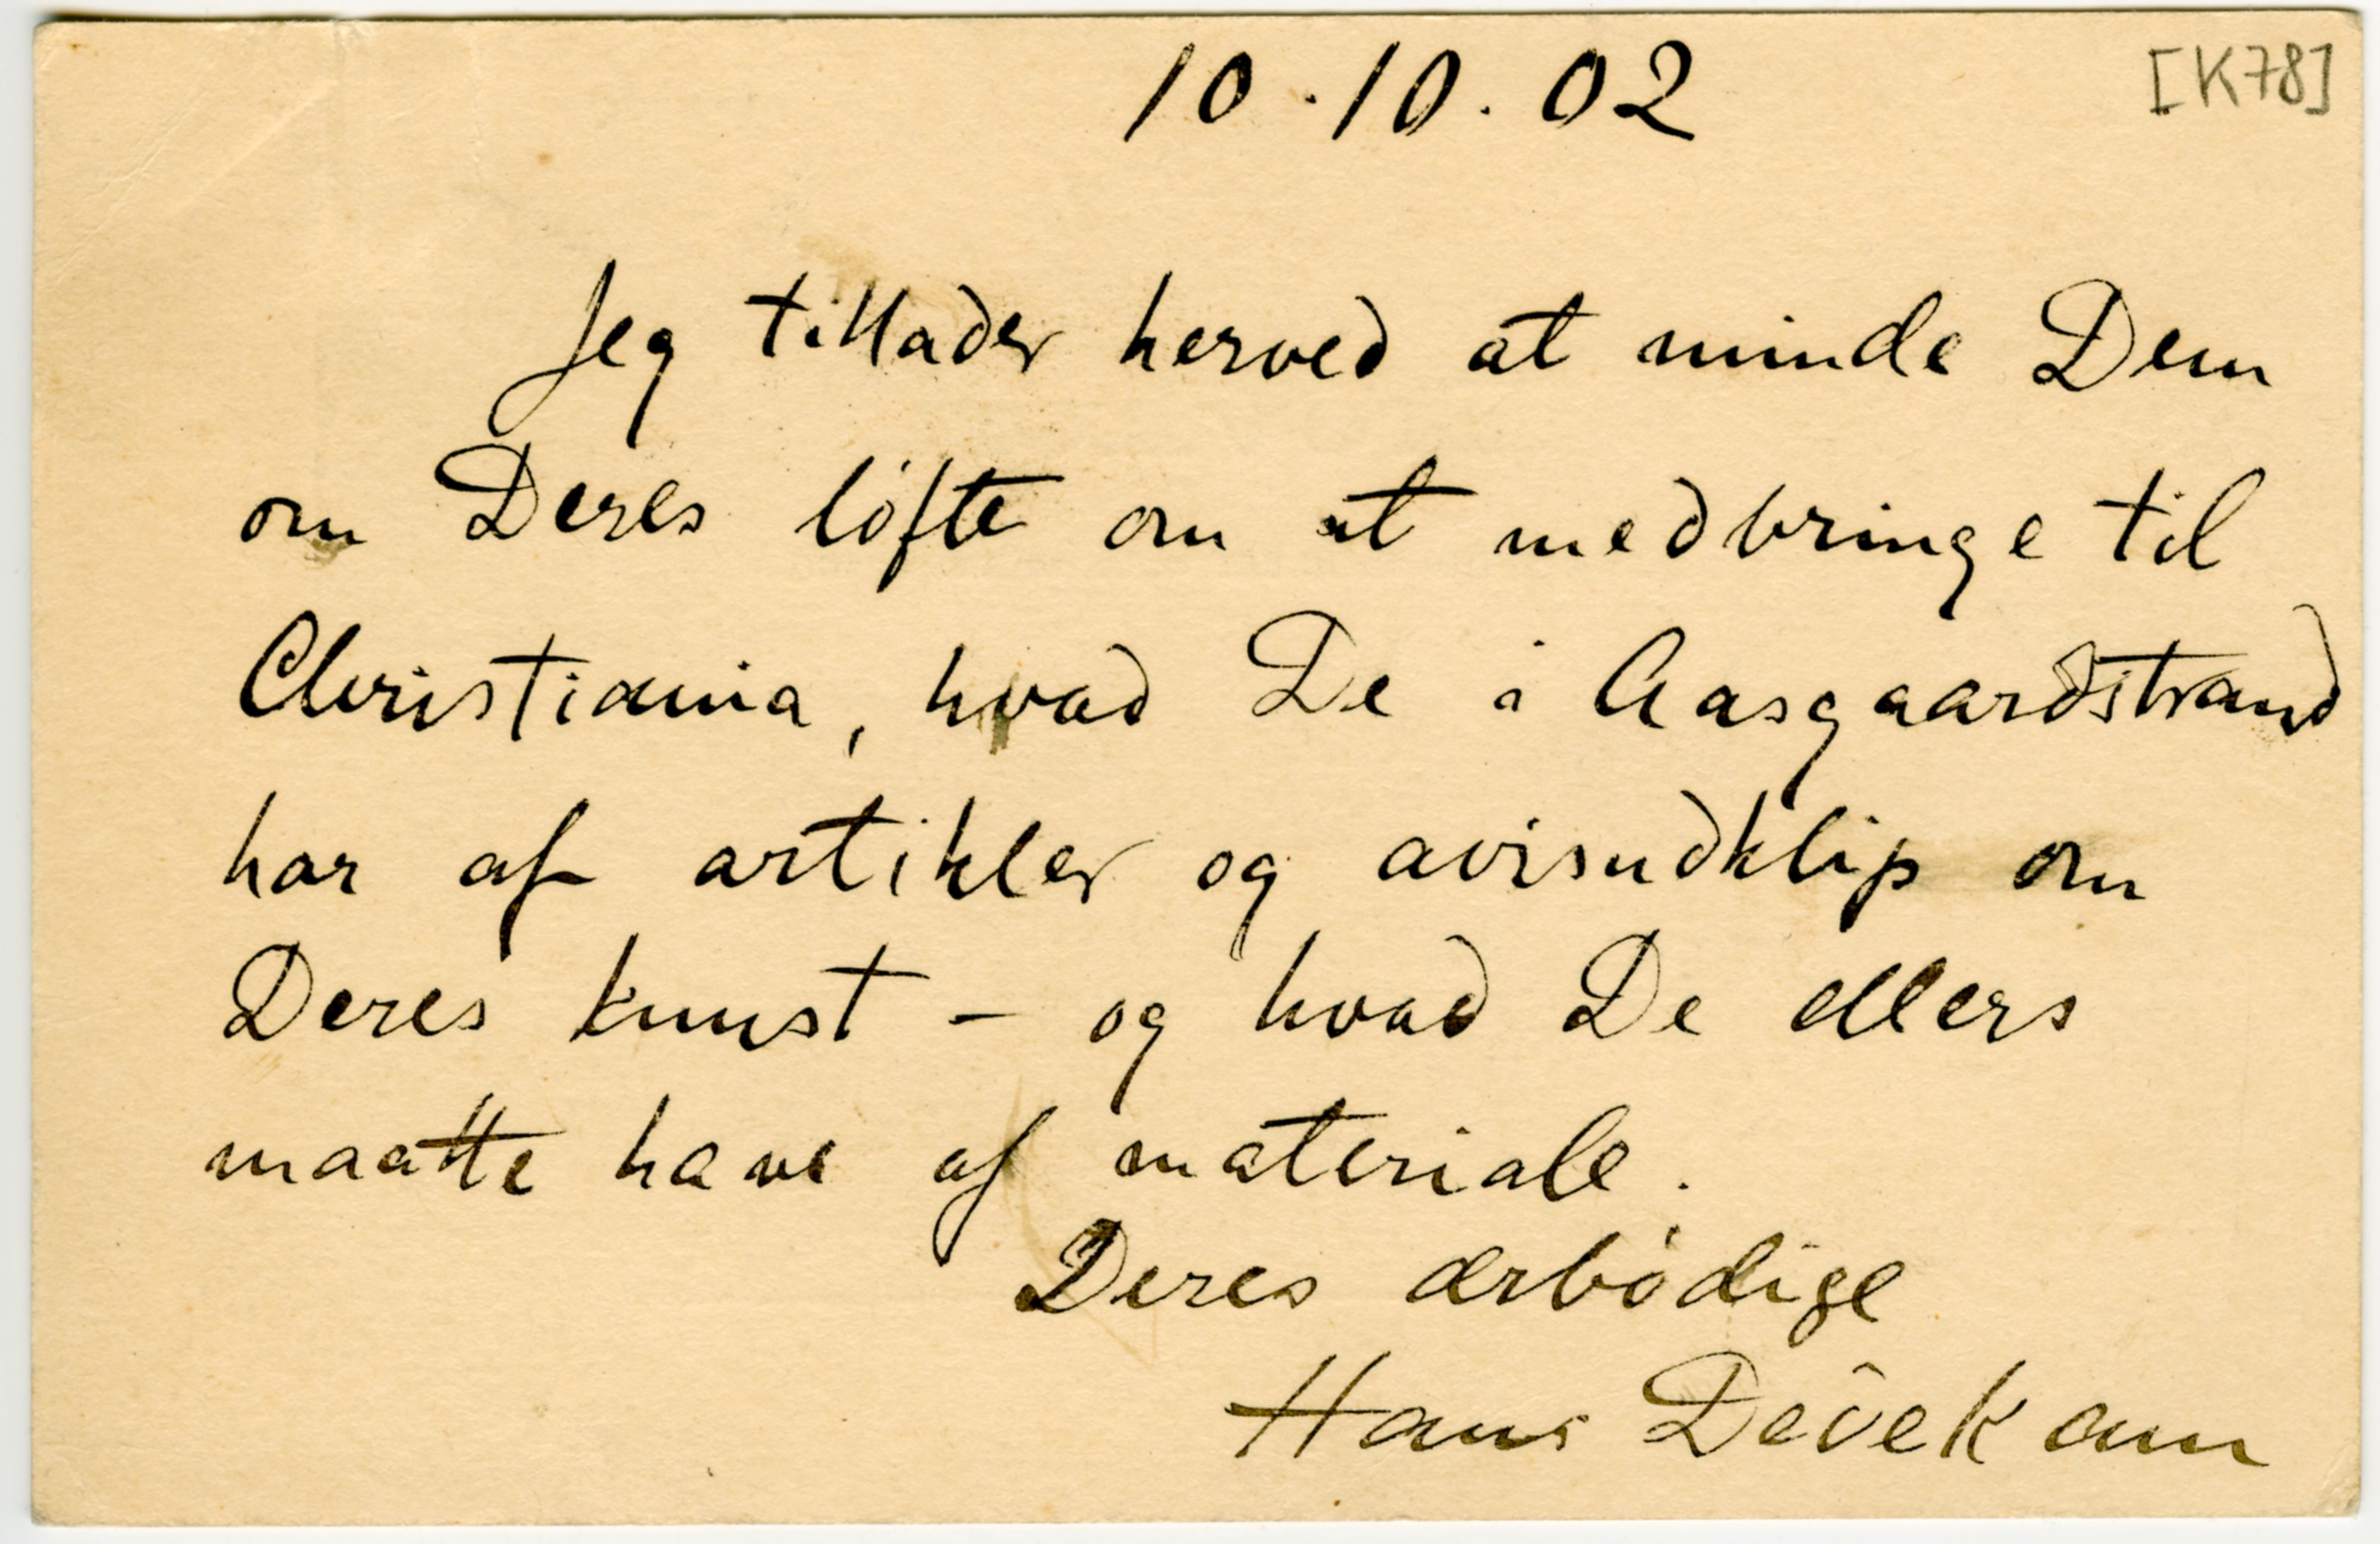 10.10.02
[K78]
Jeg tillader herved at minde Dem
om Deres löfte om at medbringe til
Christiania, hvad De i Aasgaardstrand
har af artikler og avisudklip om
Deres kunst – og hvad De ellers
maatte have af materiale.
Deres ærbödige
Hans Dedekam